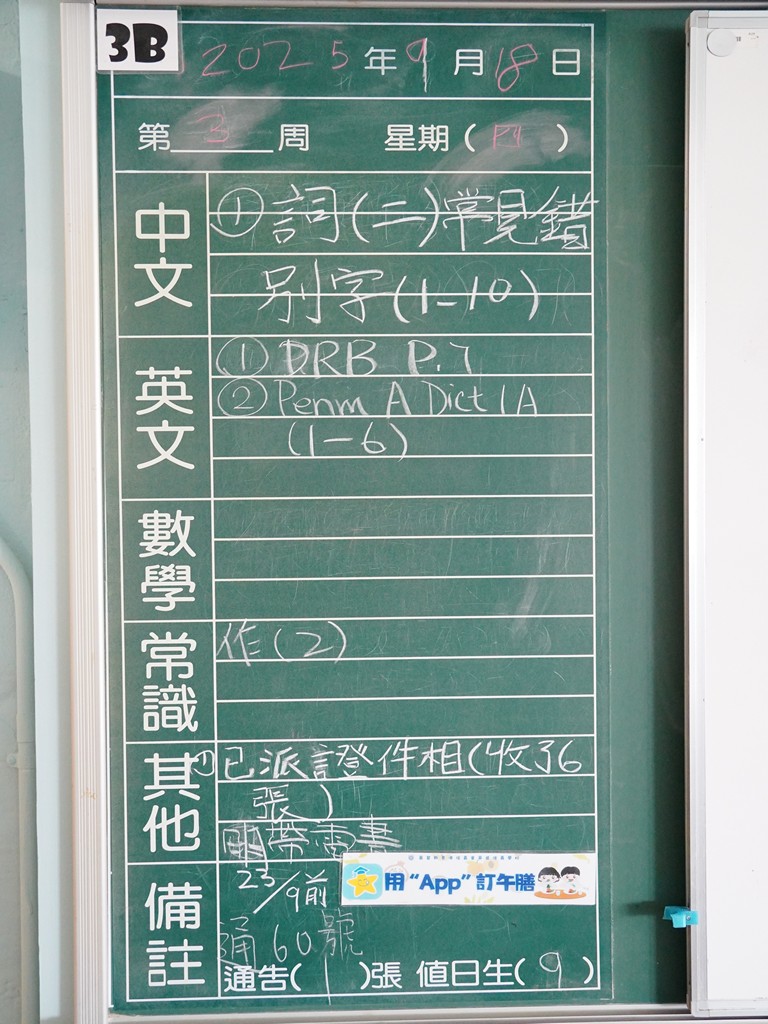 3B
2025年9月18日
第3周 星期(四)
中文
① 詞(二)常見錯
別字(1-10)
英文
① DRB P.7
② Penm A Dict 1A
(1-6)
數學
常識
作(2)
其他
① 已派證件相(收了6
張)
帶電書
備註
23/9前
用“App”訂午膳
通60號
通告(1)張 值日生(9)